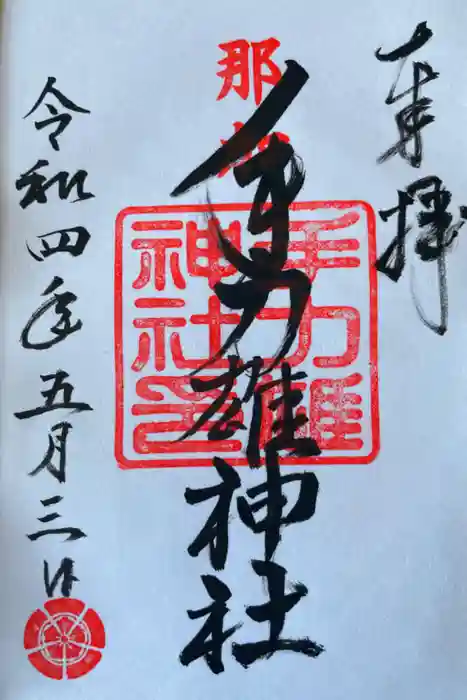 奉拝
那
手力雄神社
手力雄
神社印
令和四年五月三日